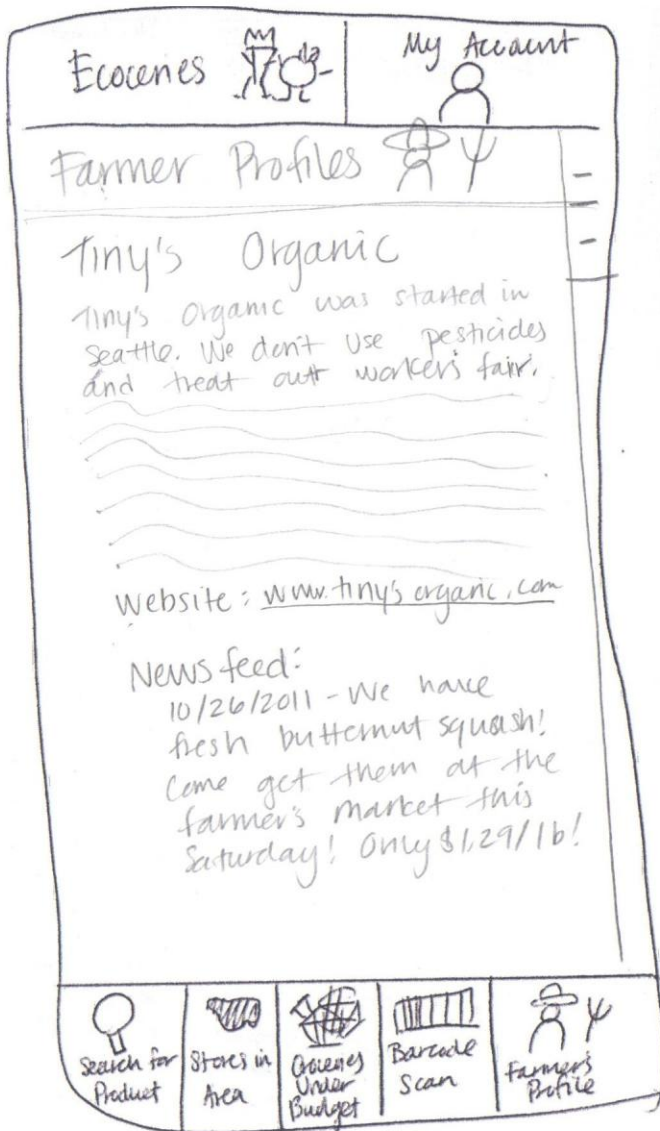 Ecoceries
My Account
Farmer Profiles
Tiny's Organic
Tiny's Organic was started in
Seattle. We don't use pesticides
and treat our workers fair.
Website: www.tiny's organic.com
News feed:
10/26/2011 - We have
fresh butternut squash!
Come get them at the
farmer's market this
Saturday! Only $1.29/lb!
Search for
Product
Stores in
Area
Groceries
Under
Budget
Barcode
Scan
Farmer's
Profile